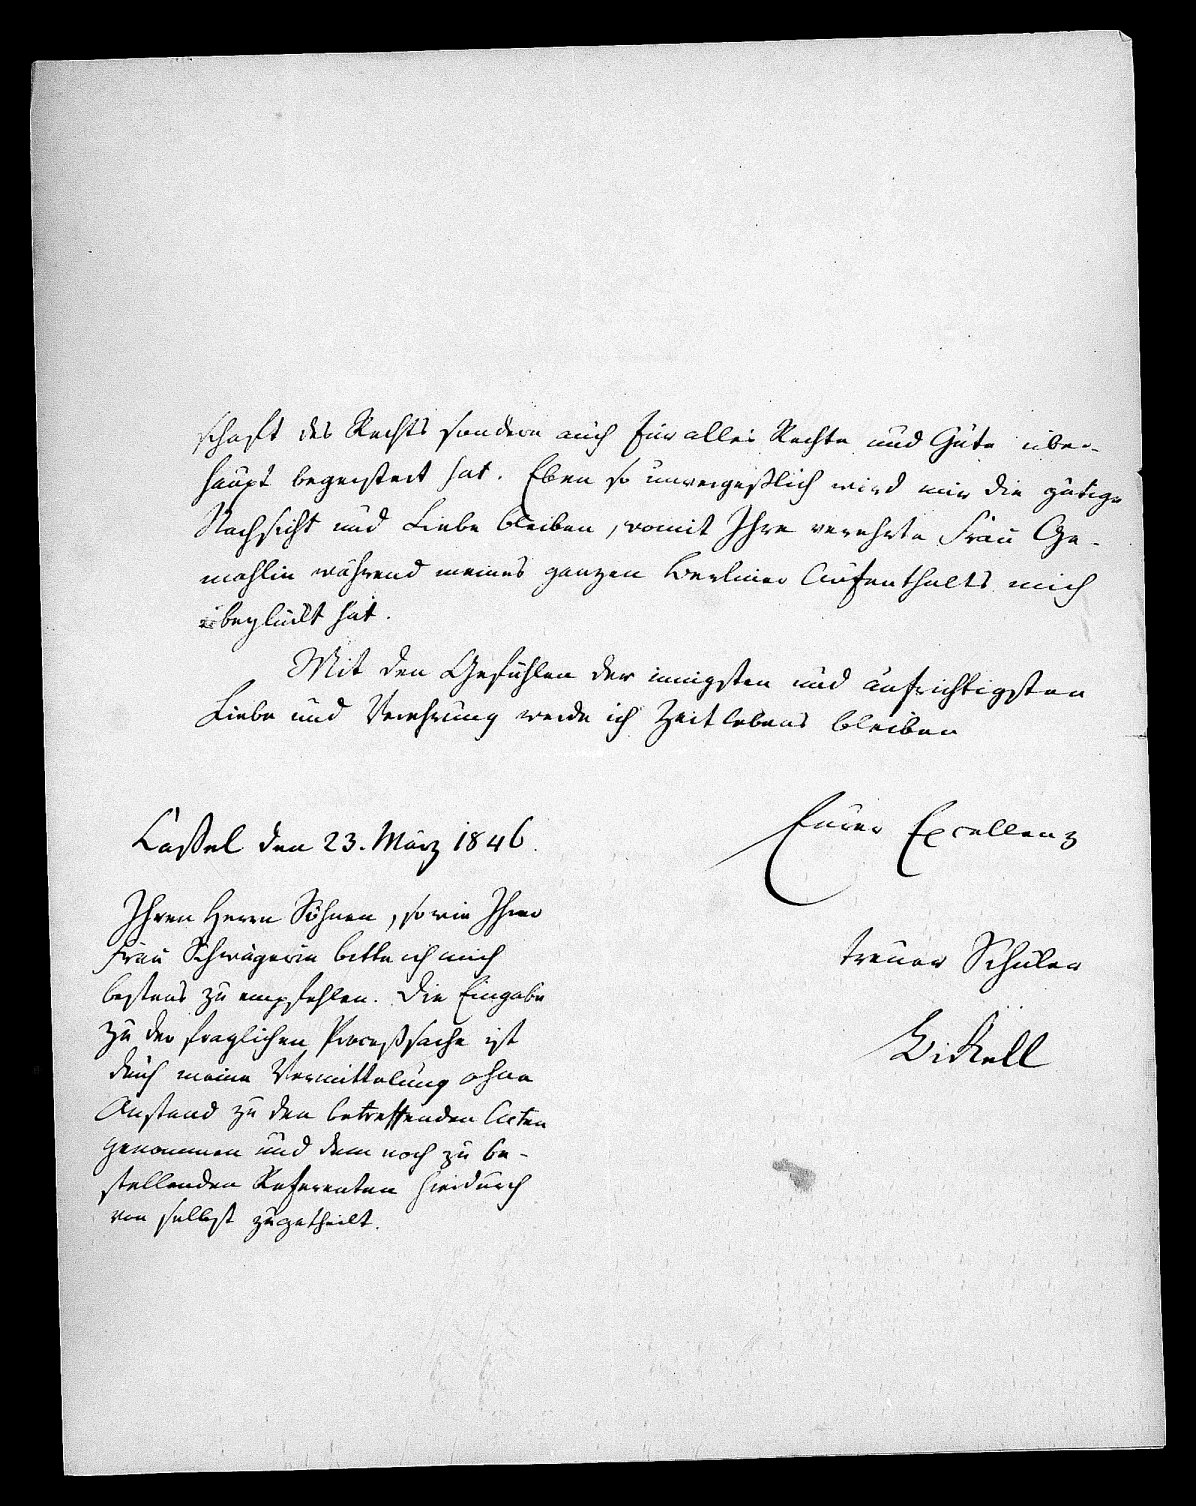 schaft des Rechts sondern auch für alles Rechte und Gute über-
haupt begeistert hat. Eben so unvergeßlich wird mir die gütige
Nachsicht und Liebe bleiben, womit Ihre verehrte Frau Ge-
mahlin während meines ganzen Berliner Aufenthalts mich
beglückt hat.
Mit den Gefühlen der innigsten und aufrichtigsten
Liebe und Verehrung werde ich Zeitlebens bleiben
Eurer Excellenz
treuer Schüler
Bickell
Cassel den 23. März 1846.
Ihren Herrn Söhnen, so wie Ihrer
Frau Schwägerin bitte ich mich
bestens zu empfehlen. Die Eingabe
zu der fraglichen Proceßsache ist
durch meine Vermittelung ohne
Anstand zu den betreffenden Acten
genommen und dem noch zu be-
stellenden Referenten hierdurch
von selbst zugetheilt.